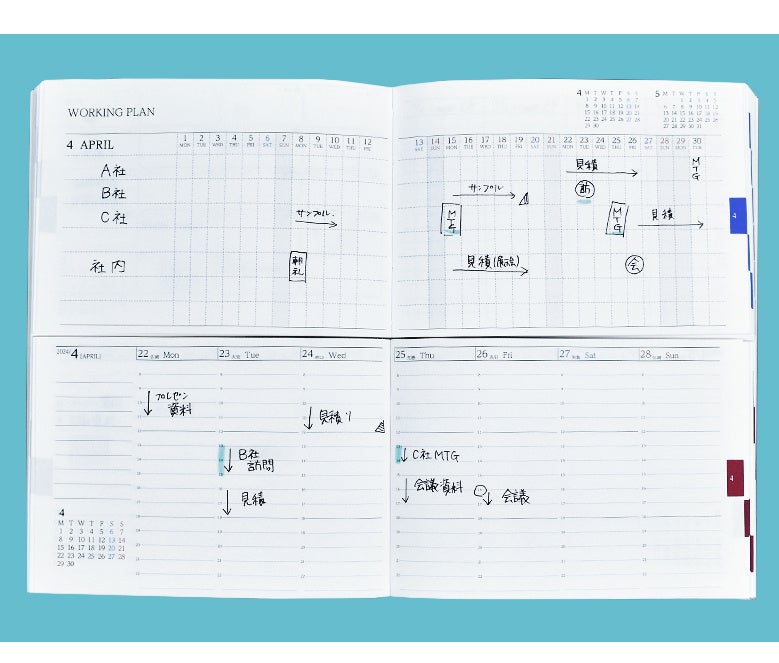 WORKING PLAN
4 APRIL
1 2 3 4 5 6 7 8 9 10 11 12
MON TUE WED THU FRI SAT SUN MON TUE WED THU FRI
A社
B社
C社 サンプル
社内 朝礼
4 M T W T F S S
1 2 3 4 5 6 7
8 9 10 11 12 13 14
15 16 17 18 19 20 21
22 23 24 25 26 27 28
29 30
5 M T W T F S S
1 2 3 4 5
6 7 8 9 10 11 12
13 14 15 16 17 18 19
20 21 22 23 24 25 26
27 28 29 30 31
13 14 15 16 17 18 19 20 21 22 23 24 25 26 27 28 29 30
SAT SUN MON TUE WED THU FRI SAT SUN MON TUE WED THU FRI SAT SUN MON TUE
見積 MTG
サンプル 訪
MTG MTG 見積
会
4
2024/4 [APRIL]
22 Mon 23 Tue 24 Wed
プレゼン
資料
見積り
B社
訪問
見積
4
M T W T F S S
1 2 3 4 5 6 7
8 9 10 11 12 13 14
15 16 17 18 19 20 21
22 23 24 25 26 27 28
29 30
25 Thu 26 Fri 27 Sat 28 Sun
C社 MTG
会議資料 会議
4